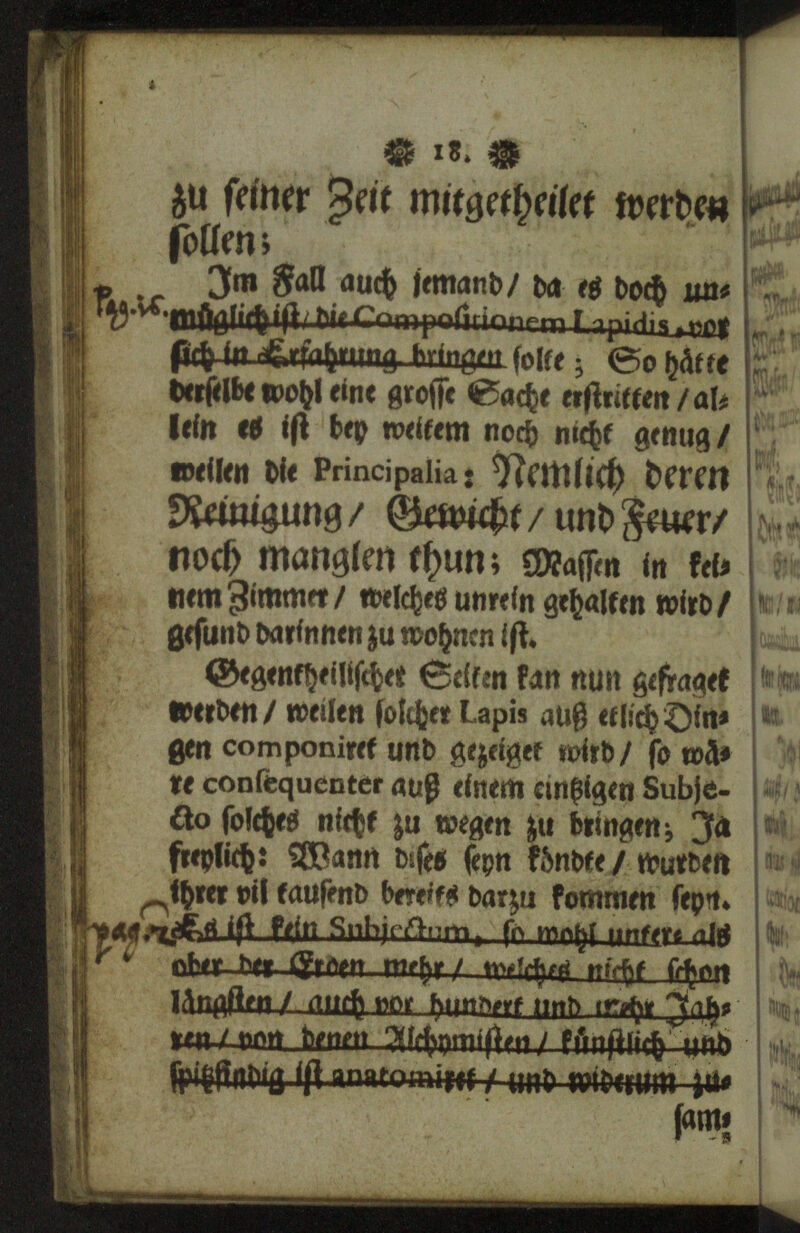 18.
zu seiner Zeit mitgetheilet werden
sollen;
Im Fall auch jemand/ da es doch un⸗
müglich ist/ die Compositionem Lapidis, vor
sich in Erfahrung bringen solte; So hätte
derselbe wohl eine grosse Sache erstritten / al⸗
lein es ist bey weitem noch nicht genug/
weilen die Principalia: Nemlich deren
Reinigung/ Gewicht/ und Feuer/
noch manglen thun; Massen in kei⸗
nem Zimmer/ welches unrein gehalten wird/
gesund darinnen zu wohnen ist.
Gegentheilischer Seiten kan nun gefraget
werden/ weilen solcher Lapis auß etlich Din⸗
gen componiret und gezeiget wird/ so wä⸗
re consequenter auß einem eintzigen Subje-
cto solches nicht zu wegen zu bringen; Ja
freylich: Wann dises seyn köndte/ wurden
ihrer vil tausend bereits darzu kommen seyn.
Es ist kein Subjectum, so wohl untere als
ober der Erden mehr/ welches nicht schon
längsten/ auch vor hundert und mehr Jah⸗
ren/ von denen Alchymisten/ künstlich und
spitzfindig ist anatomiret/ und widerum zu⸗
sam⸗